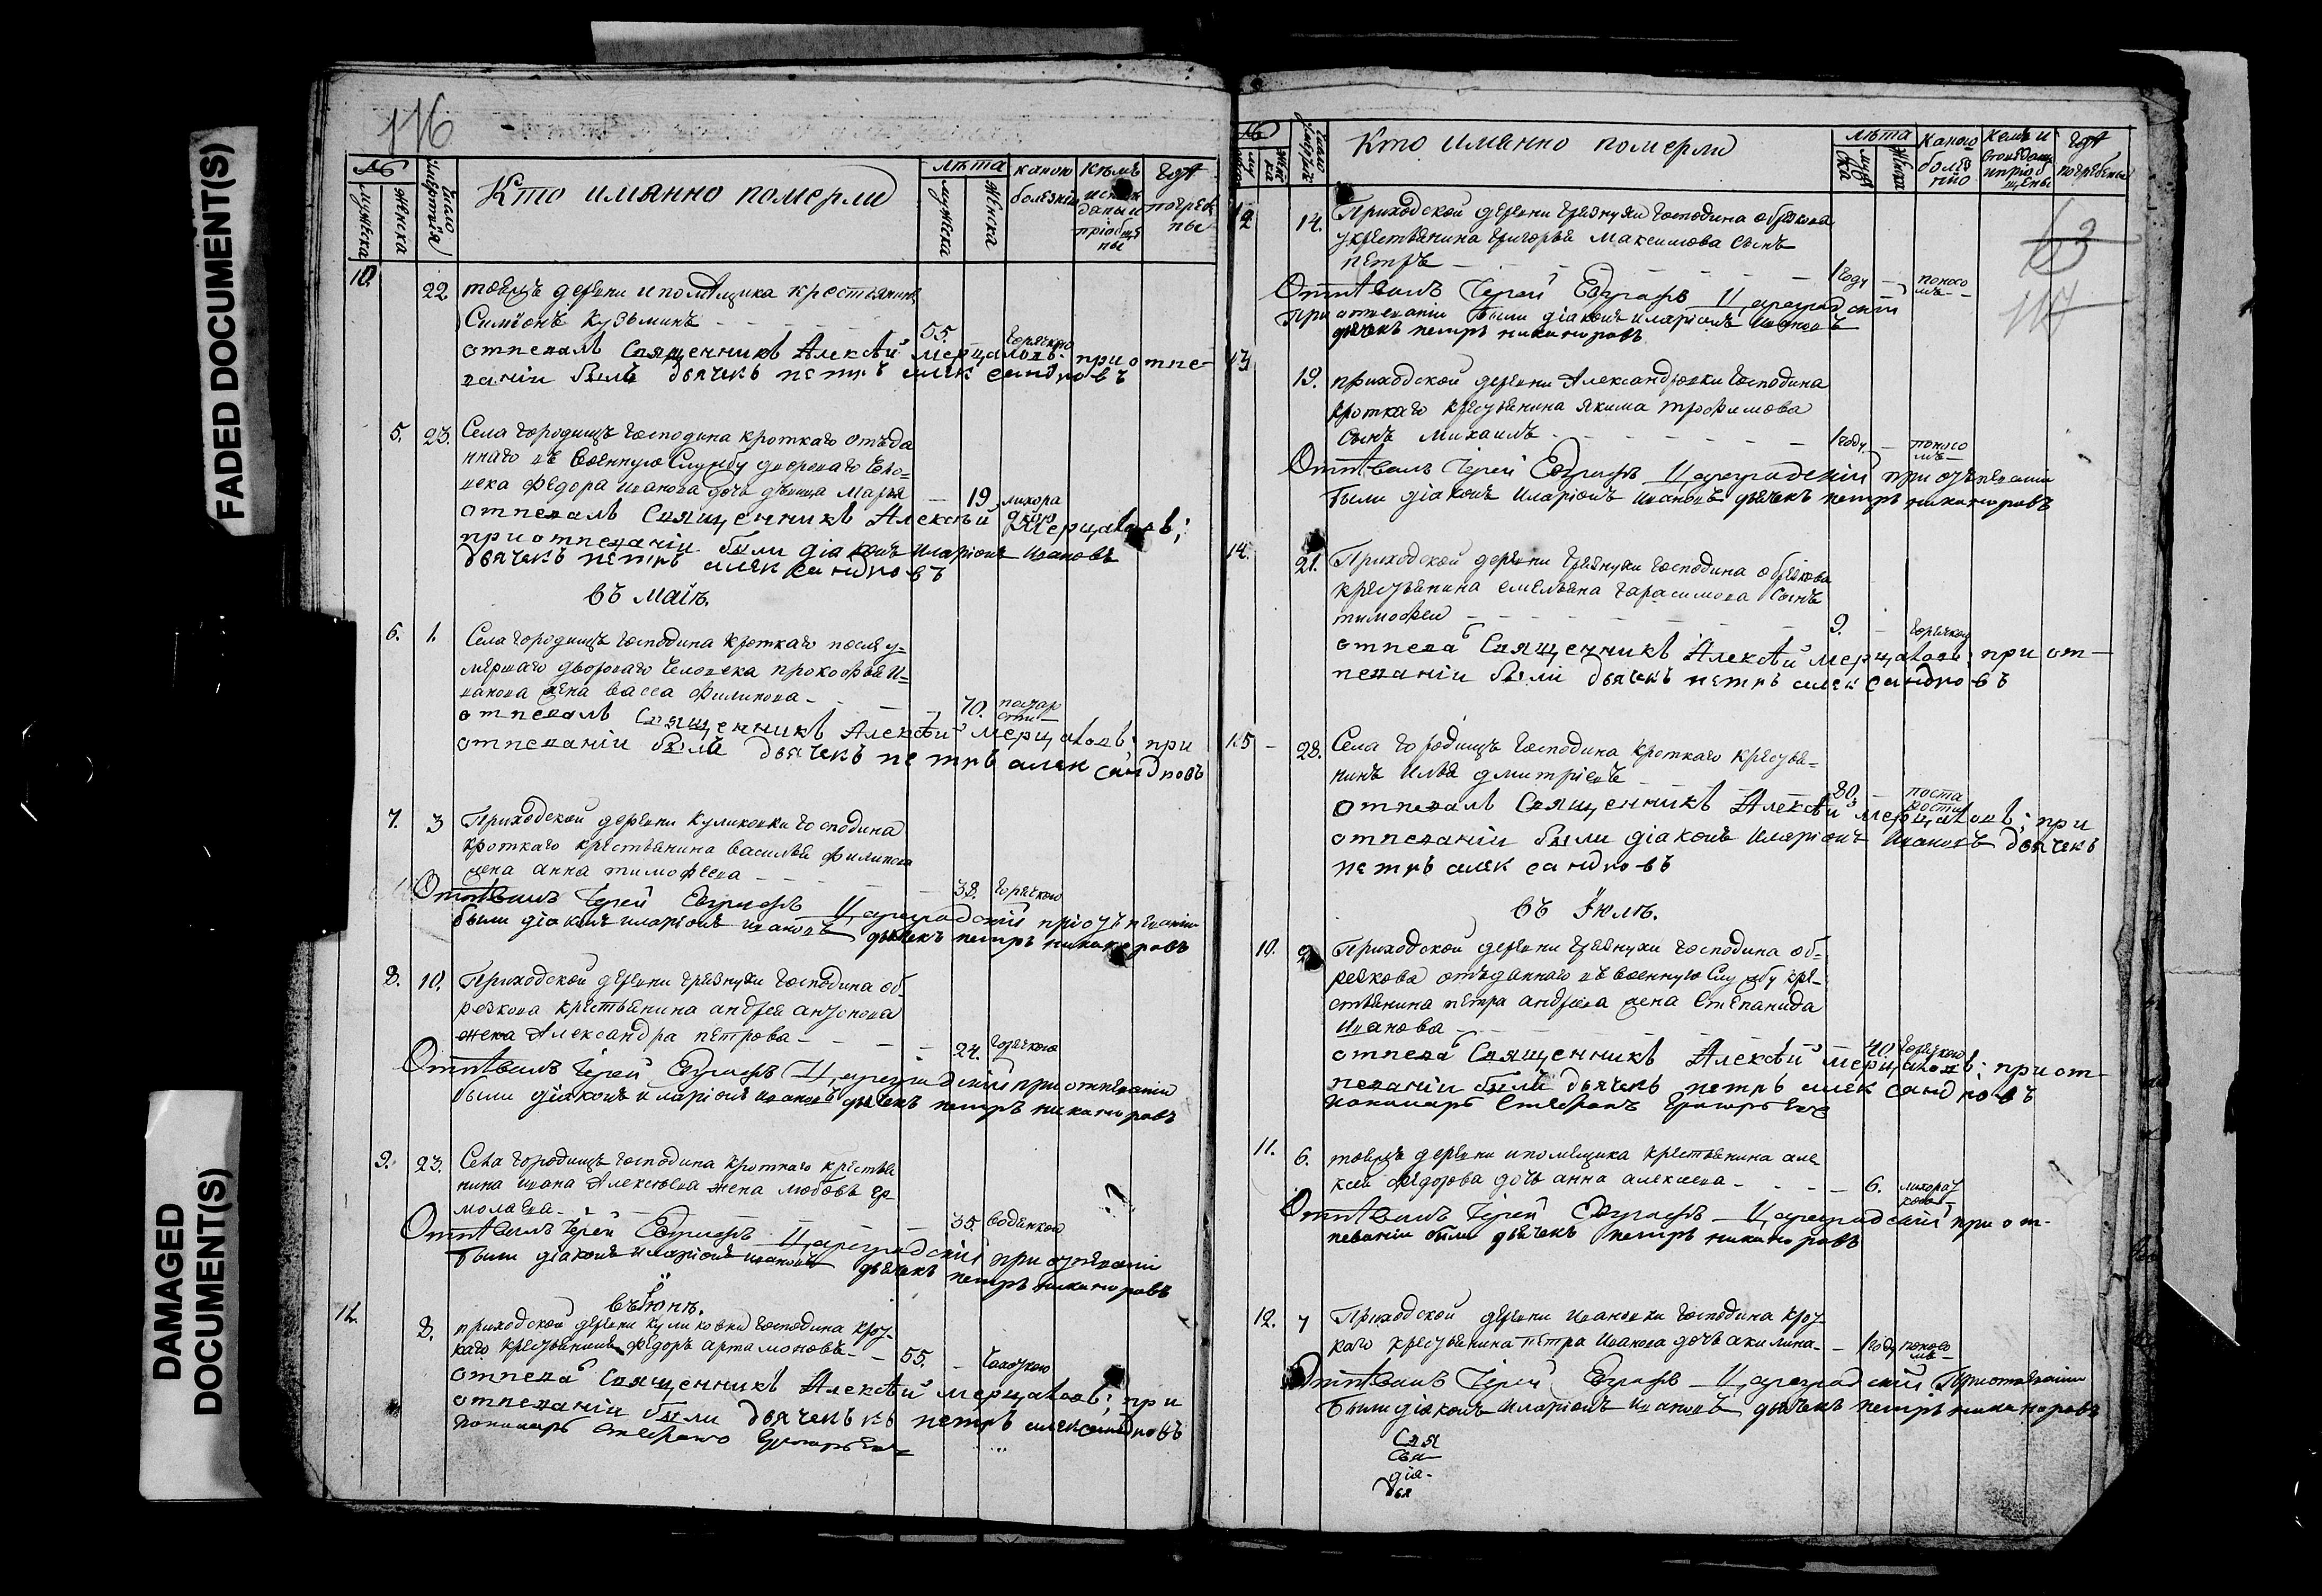 FADED DOCUMENT(S)
DAMAGED
DOCUMENT(S)
176
№
мужеска
женска
Число
умертвія
Кто имянно померли
Лѣта
мужеска
женска
какою
болезнію
Кемъ
испов
даны и
пріобще
ны
Гдѣ
погребе
ны
10.
22 тоеяжъ деревни и помѣщика крестьянинъ
Симіонъ Кузьминъ 55. горячкою
отпевалъ Священникъ Алексѣй Мерцаловъ: при отпе-
ваніи былъ дьячекъ петръ александровъ
5. 23. Села городищъ господина кроткаго отъда
ннаго въ военную службу двороваго чело-
века Федора иванова дочь девица марья 19. лихора
дкою
отпевалъ Священникъ Алексѣй Мерцаловъ;
при отпеваніи были діаконъ иларіонъ ивановъ
дьячекъ петръ александровъ
въ маіѣ.
6. 1. Села городищъ господина кроткаго после у-
мершаго двороваго человека прокофья и-
ванова жена васса филипова 70.
отпевалъ Священникъ Алексѣй Мерцаловъ; при
отпеваніи былъ дьячекъ петръ александровъ
7. 3 Приходской деревни Куликовки господина
кроткаго крестьянина василья филипова
жена анна тимофеева 38. горячкою
Отпѣвалъ Іерей Евграфъ Цареградскій при отъпеваніи
были діаконъ иларіонъ ивановъ дьячекъ петръ никаноровъ
8. 10. Приходской деревни грязнухи господина об-
резкова крестьянина андрея антонова
жена Александра петрова 24. горячкою
Отпѣвалъ Іерей Евграфъ Цареградскій при отпеваніи
были діаконъ иларіонъ ивановъ дьячекъ петръ никаноровъ
9. 23. Села городищъ господина кроткаго крестья
нина ивана Алексеева жена любовь ер
молаева 35. водянкою
Отпѣвалъ Іерей Евграфъ Цареградскій при отпеваніи
были діаконъ иларіонъ ивановъ дьячекъ петръ никаноровъ
въ Іюнѣ.
11.
8. приходской деревни куликовки господина крот-
каго крестьянинъ Федоръ артамоновъ 55. чахоткою
отпева Священникъ Алексѣй Мерцаловъ; при
отпеваніи были дьячекъ петръ александровъ
пономарь Стефанъ Григорьевъ
№
Число
Кто имянно померли
Лѣта
Какою
болез
нію
Кемъ и
исповеданы
и пріоб
щены
Гдѣ
погребены
12 14. Приходской деревни грязнухи господина обрезкова
крестьянина григорья Максимова сынъ
петръ 1 году поносо
мъ
Отпѣвалъ Іерей Евграфъ Цареградскій
при отпеваніи были діаконъ иларіонъ ивановъ
дьячекъ петръ никаноровъ
63
13
19. приходской деревни Александровки господина
кроткаго крестьянина якима трофимова
сынъ михаилъ 1 году поносо
мъ
Отпѣвалъ Іерей Евграфъ Цареградскій при отъпеваніи
были діаконъ иларіонъ ивановъ дьячекъ петръ никаноровъ
14.
21. Приходской деревни грязнухи господина обрезкова
крестьянина емельяна гарасимова сынъ
тимофей 9. горячкою
отпева Священникъ Алексѣй Мерцаловъ; при от-
певаніи были дьячекъ петръ александровъ
15 28. Села городищъ господина кроткаго крестья-
нинъ илья дмитріевъ 80.
отпевалъ Священникъ Алексѣй Мерцаловъ; при
отпеваніи были діаконъ иларіонъ ивановъ дьячекъ
петръ александровъ
въ Іюлѣ.
10. Приходской деревни грязнухи господина об-
резкова отъданнаго въ военную службу кре-
стьянина петра андреева жена степанида
иванова 40. горячкою
отпева Священникъ Алексѣй Мерцаловъ; при от-
певаніи былъ дьячекъ петръ александровъ
пономарь Стефанъ Григорьевъ
11. 6. тоеяжъ деревни и помещика крестьянина але
ксея Федорова дочь анна алексеева 6. лихорад
кою
Отпѣвалъ Іерей Евграфъ Цареградскій при от-
певаніи были дьячекъ петръ никаноровъ
12. 7 Приходской деревни ивановки господина крот
каго крестьянина петра иванова дочь акилина 1 году поносо
мъ
Отпѣвалъ Іерей Евграфъ Цареградскій При отпеваніи
Были діаконъ иларіонъ ивановъ дьячекъ петръ никаноровъ
Свя
Свя
дія-
дья